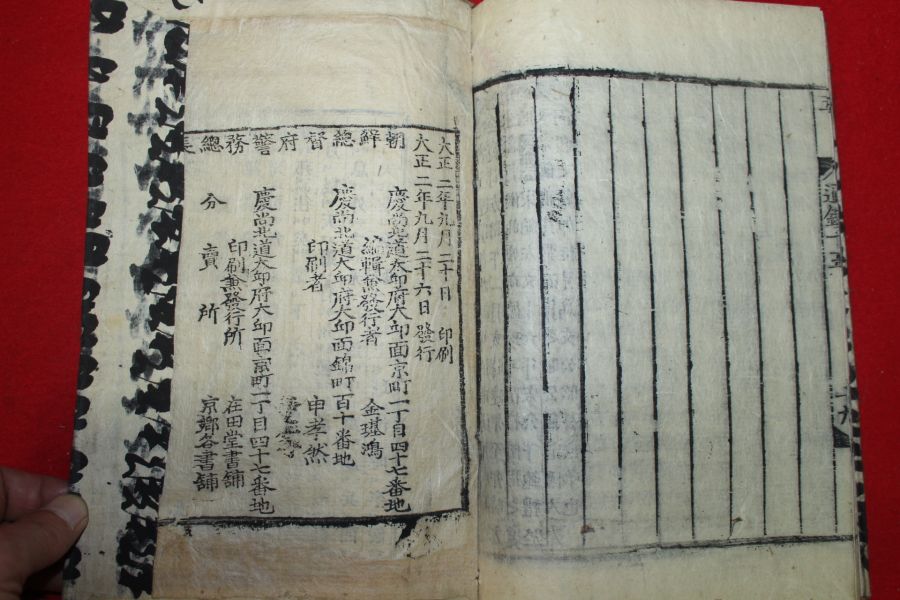 通鑑十五
十九
大正二年九月二十日 印刷
大正二年九月二十六日 發行
朝鮮總督府警務總長
慶尚北道大邱府大邱面京町一丁目四十七番地
編輯兼發行者 金璂鴻
慶尚北道大邱府大邱面錦町百十番地
印刷者 申孝然
慶尚北道大邱府大邱面京町一丁目四十七番地
印刷兼發行所 在田堂書舖
分賣所 京鄉各書舖